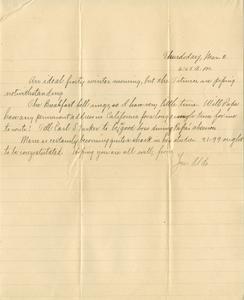 Thursday, Mar. 8
8:45 A.M.
An ideal frosty winter morning, but the
are piping
notwithstanding.
The Breakfast bell rings, so I have very little time. Will Papa
have any permanent address in California for a long enough time for me
to write? Tell Earl &
to be good boys during Papa's absence.
is certainly becoming quite a shark in her studies. 97-99 ought
to be congratulated. Hoping you are all well, from